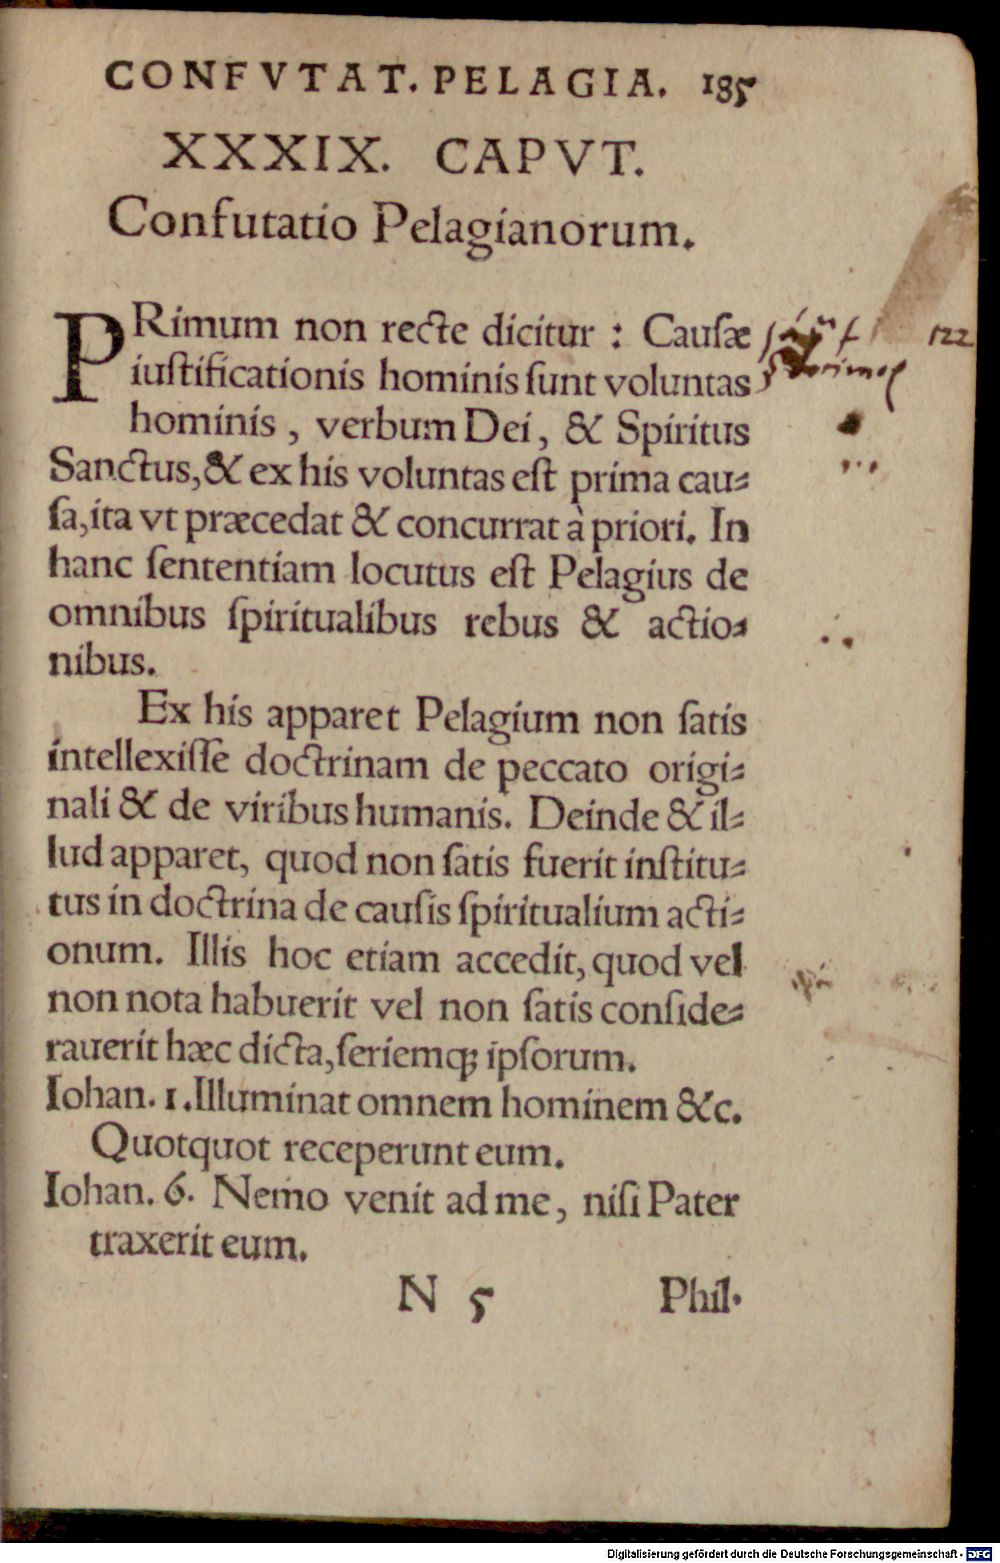 CONFVTAT. PELAGIA. 185
XXXIX. CAPVT.
Confutatio Pelagianorum.
PRimum non recte dicitur : Causæ
iustificationis hominis sunt voluntas
hominis , verbum Dei, & Spiritus
Sanctus,& ex his voluntas est prima cau-
sa,ita vt præcedat & concurrat à priori. In
hanc sententiam locutus est Pelagius de
omnibus spiritualibus rebus & actio-
nibus.
Ex his apparet Pelagium non satis
intellexisse doctrinam de peccato origi-
nali & de viribus humanis. Deinde & il-
lud apparet, quod non satis fuerit institu-
tus in doctrina de causis spiritualium acti-
onum. Illis hoc etiam accedit, quod vel
non nota habuerit vel non satis conside-
rauerit hæc dicta,seriemq; ipsorum.
Iohan. 1.Illuminat omnem hominem &c.
Quotquot receperunt eum.
Iohan. 6. Nemo venit ad me, nisi Pater
traxerit eum.
N 5 Phil.
122
Digitalisierung gefördert durch die Deutsche Forschungsgemeinschaft - DFG